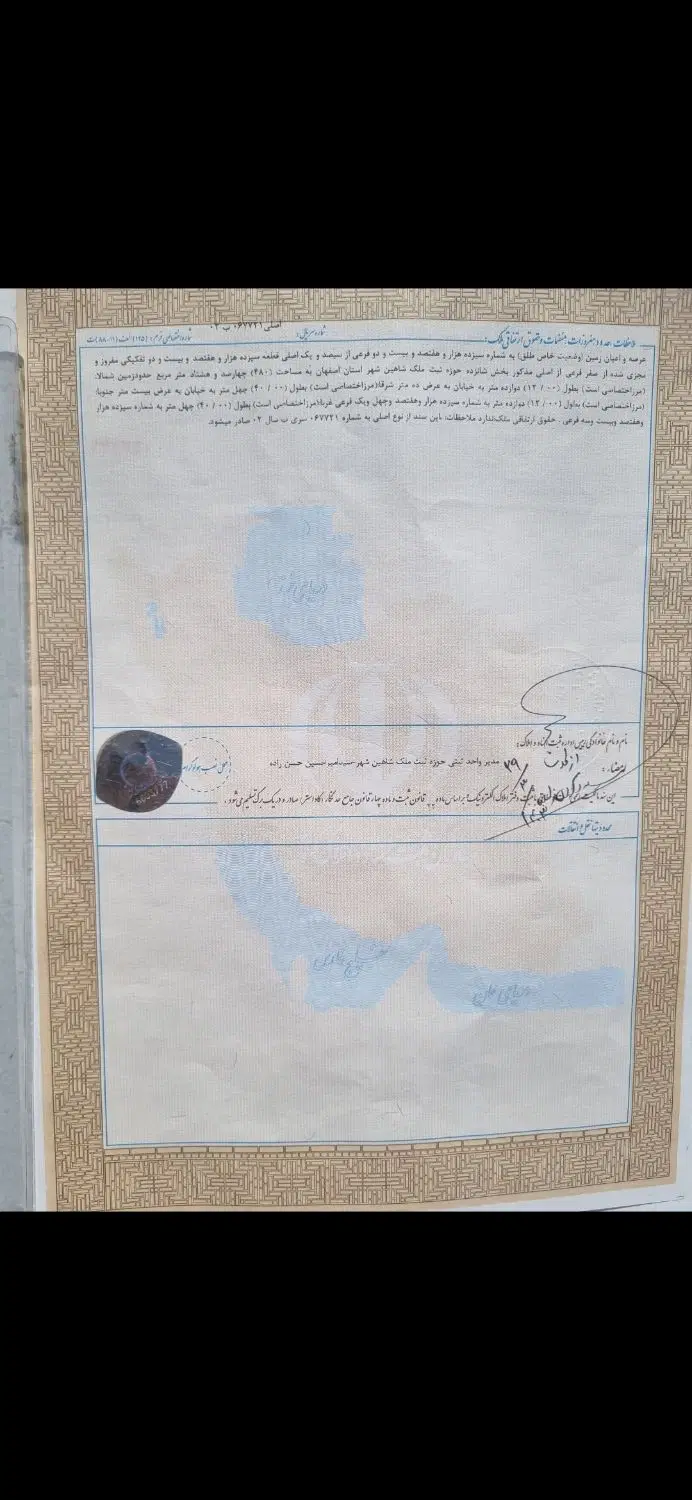 اصلی ۰۶۷۷۲۱ ب ۰۲
شماره سریال:
ملاحظات حدود و مفروزات، مشخصات و حقوق ارتفاقی ملک:
عرصه و اعیان زمین (وضعیت خاص طلق) به شماره سیزده هزار و هفتصد و بیست و دو فرعی از سیصد و یک اصلی قطعه سیزده هزار و هفتصد و بیست و دو تفکیکی مفروز و
مجزی شده از صفر فرعی از اصلی مذکور بخش شانزده حوزه ثبت ملک شاهین شهر استان اصفهان به مساحت (۴۸۰) چهارصد و هشتاد متر مربع حدودزمین شمالا:
(مرزاختصاصی است) بطول (۰۰ / ۱۲) دوازده متر به خیابان به عرض ده متر شرقا:(مرزاختصاصی است) بطول (۰۰ / ۴۰) چهل متر به خیابان به عرض بیست متر جنوبا:
(مرزاختصاصی است) بطول (۰۰ / ۱۲) دوازده متر به شماره سیزده هزار وهفتصد وچهل ویک فرعی غربا:(مرزاختصاصی است) بطول (۰۰ / ۴۰) چهل متر به شماره سیزده هزار
وهفتصد وبیست وسه فرعی . حقوق ارتفاقی ملک:ندارد ملاحظات: این سند از نوع اصلی به شماره ۰۶۷۷۲۱ سری ب سال ۰۲ صادر میشود.
دریای خزر
نام و نام خانوادگی رییس اداره ثبت اسناد و املاک:
مدیر واحد ثبتی حوزه ثبت ملک شاهین شهر-سیدامیرحسین حسن زاده
امضاء:
محل نصب هولوگرام
دفتر املاک الکترونیک براساس ماده ۲۲ قانون ثبت و ماده چهار قانون جامع حدنگار (کاداستر) صادر و در یک برگ تسلیم می شود.
محدودیتها نقل و انتقالات
خلیج فارس
دریای عمان